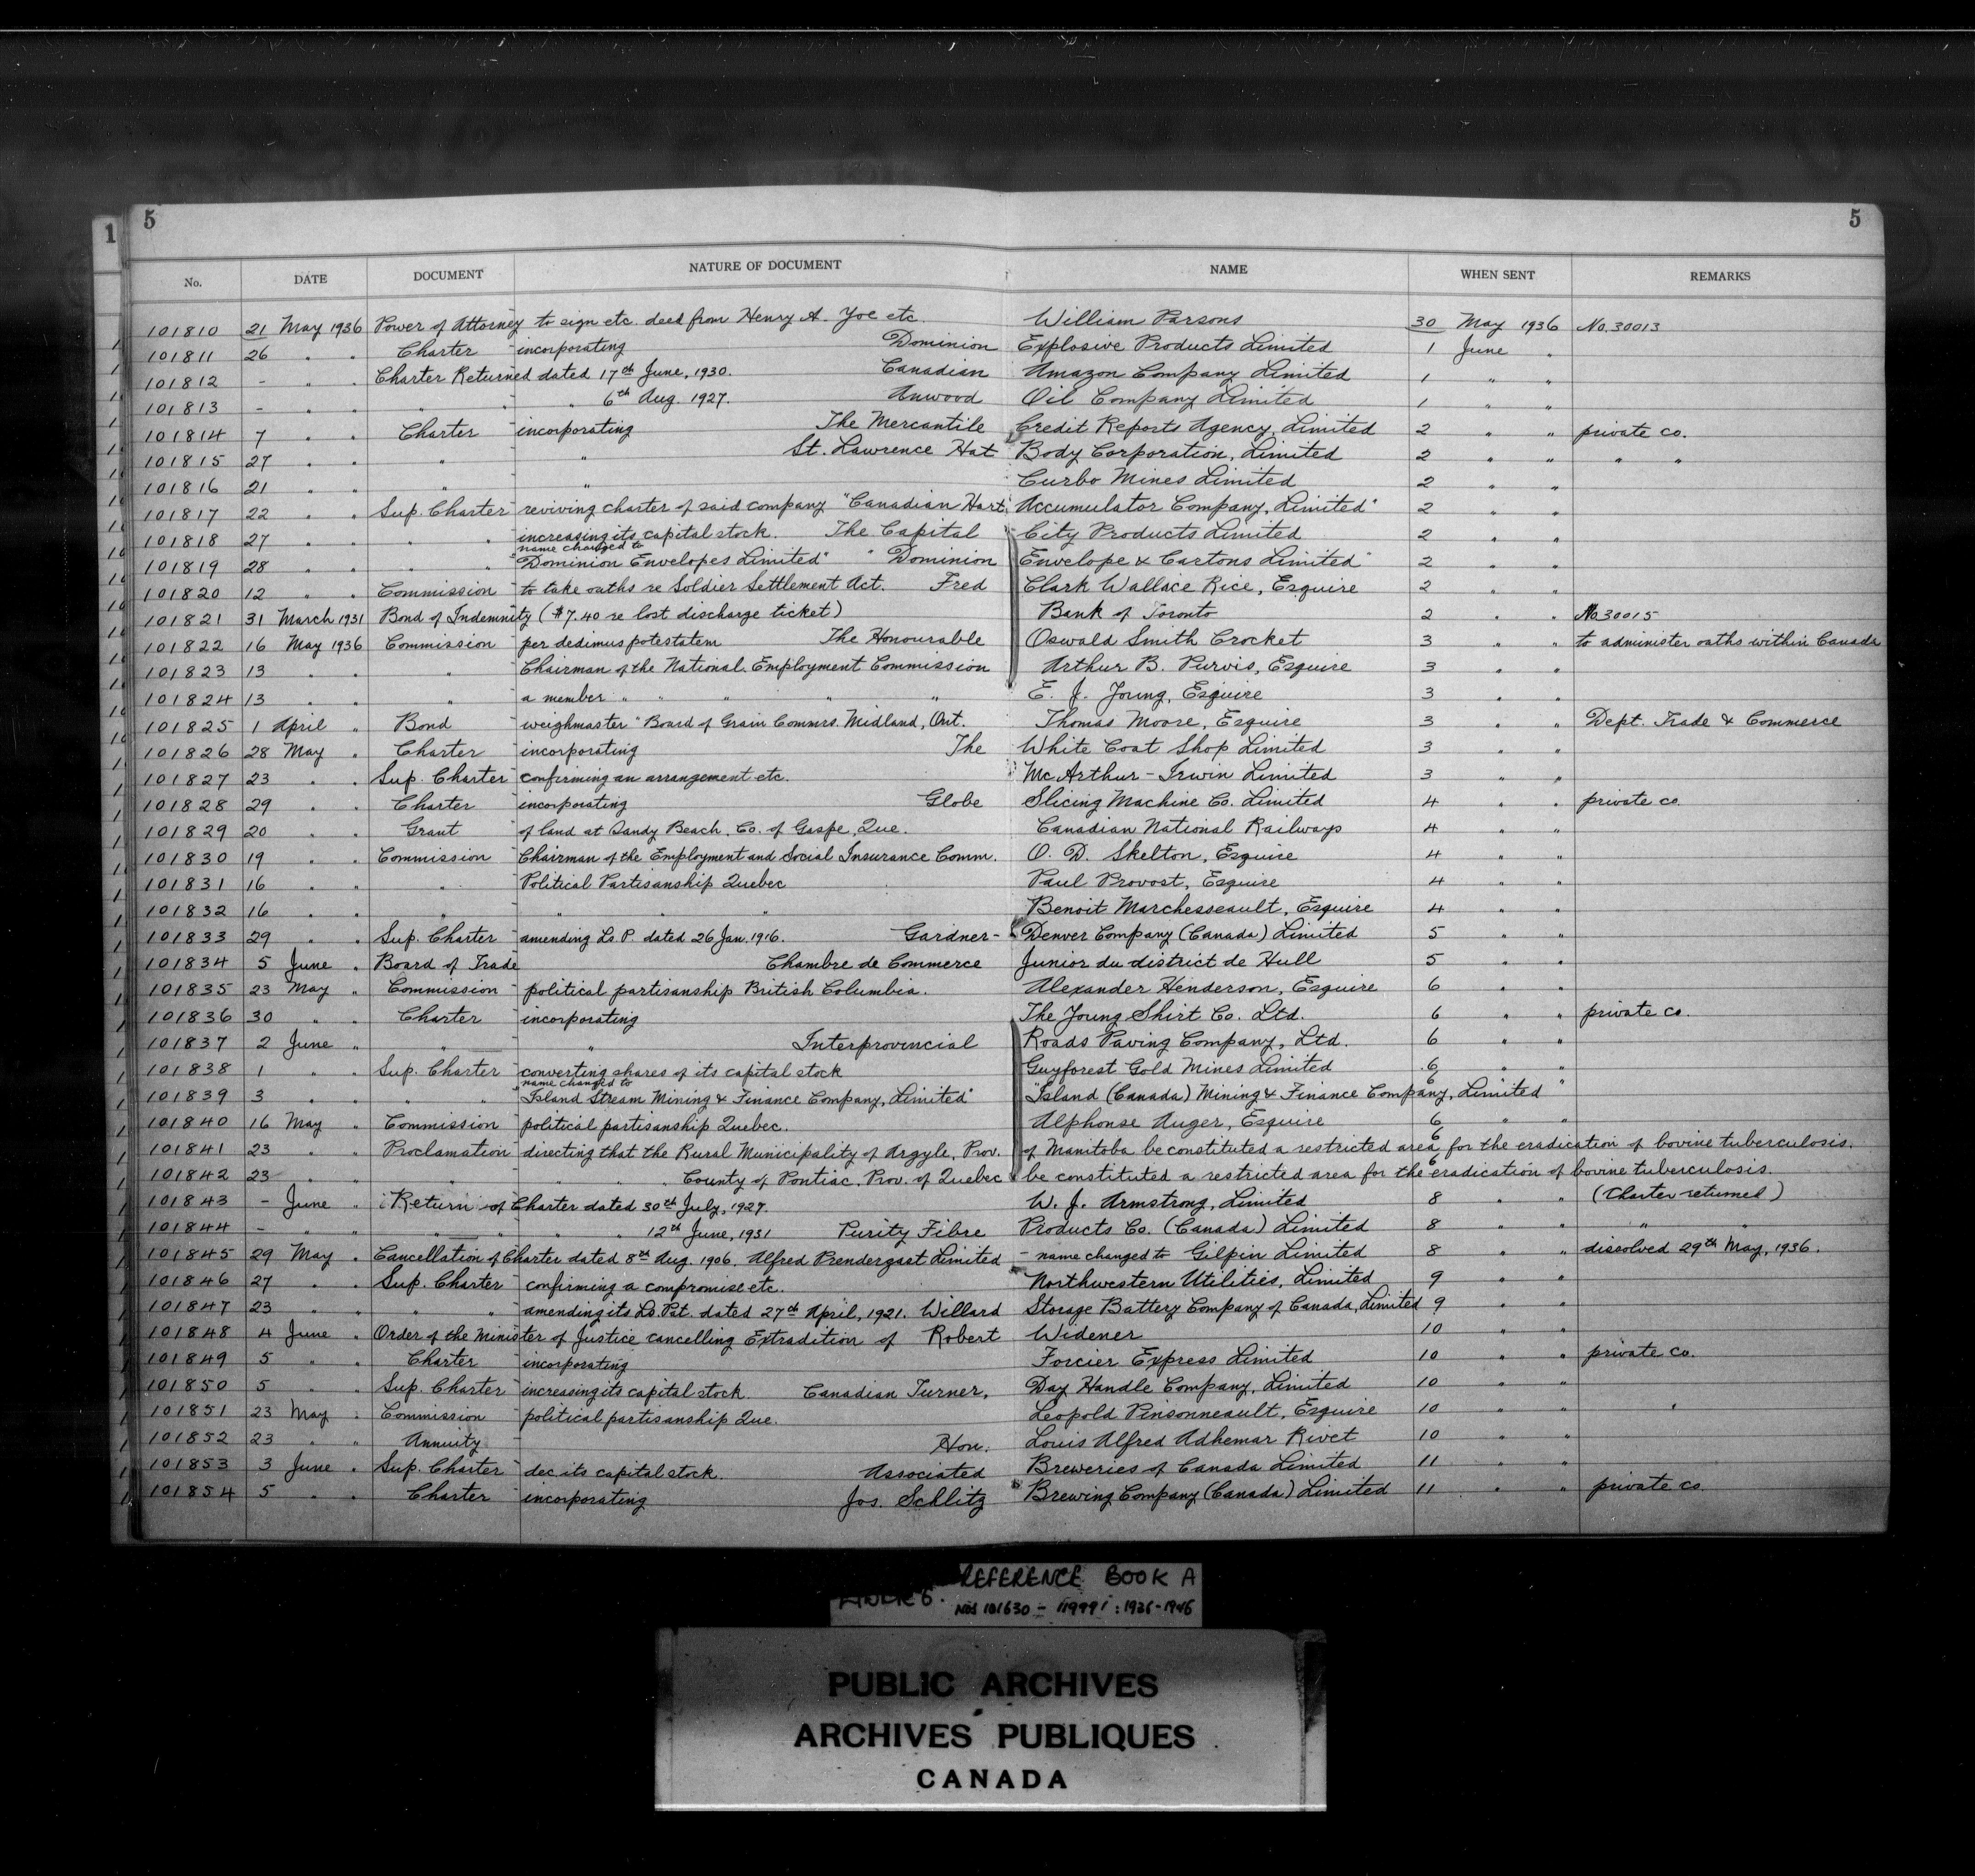 5 5
1
No. DATE DOCUMENT NATURE OF DOCUMENT NAME WHEN SENT REMARKS
101810 21 May 1936 Power of Attorney to sign etc. deed from Henry A. Yoe etc. William Parsons 30 May 1936 No. 30013
101811 26 " " Charter incorporating Dominion Explosive Products Limited 1 June "
101812 - " " Charter Returned dated 17th June, 1930. Canadian Amazon Company Limited 1 " "
101813 - " " " " " 6th Aug. 1927. Anwood Oil Company Limited 1 " "
101814 7 " " Charter incorporating The Mercantile Credit Reports Agency, Limited 2 " " private co.
101815 27 " " " " St. Lawrence Hat Body Corporation, Limited 2 " " " "
101816 21 " " " " Curbo Mines Limited 2 " "
101817 22 " " Sup. Charter reviving charter of said company "Canadian Hart Accumulator Company, Limited" 2 " "
101818 27 " " " " increasing its capital stock. The Capital City Products Limited 2 " "
name changed to
101819 28 " " " " "Dominion Envelopes Limited" " Dominion Envelope & Cartons Limited" 2 " "
101820 12 " " Commission to take oaths re Soldier Settlement Act. Fred Clark Wallace Rice, Esquire 2 " "
101821 31 March 1931 Bond of Indemnity ($7.40 re lost discharge ticket) Bank of Toronto 2 " " No. 30015
101822 16 May 1936 Commission per dedimus potestatem The Honourable Oswald Smith Crocket 3 " " to administer oaths within Canada
101823 13 " " " Chairman of the National Employment Commission Arthur B. Purvis, Esquire 3 " "
101824 13 " " " a member " " " " " E. J. Young, Esquire 3 " "
101825 1 April " Bond weighmaster "Board of Grain Commrs. Midland, Ont. Thomas Moore, Esquire 3 " " Dept. Trade & Commerce
101826 28 May " Charter incorporating The White Coat Shop Limited 3 " "
101827 23 " " Sup. Charter confirming an arrangement etc. McArthur-Irwin Limited 3 " "
101828 29 " " Charter incorporating Globe Slicing Machine Co. Limited 4 " " private co.
101829 20 " " Grant of land at Sandy Beach, Co. of Gaspe, Que. Canadian National Railways 4 " "
101830 19 " " Commission Chairman of the Employment and Social Insurance Comm. O. D. Skelton, Esquire 4 " "
101831 16 " " " Political Partisanship Quebec Paul Provost, Esquire 4 " "
101832 16 " " " " " " Benoit Marchesseault, Esquire 4 " "
101833 29 " " Sup. Charter amending Ls. P. dated 26 Jan. 1916. Gardner- Denver Company (Canada) Limited 5 " "
101834 5 June " Board of Trade Chambre de Commerce Junior du district de Hull 5 " "
101835 23 May " Commission political partisanship British Columbia. Alexander Henderson, Esquire 6 " "
101836 30 " " Charter incorporating The Young Shirt Co. Ltd. 6 " " private co.
101837 2 June " " " Interprovincial Roads Paving Company, Ltd. 6 " "
101838 1 " " Sup. Charter converting shares of its capital stock Guyforest Gold Mines Limited 6 " "
name changed to
101839 3 " " " " "Island Stream Mining & Finance Company, Limited" "Island (Canada) Mining & Finance Company, Limited" 6
101840 16 May " Commission political partisanship Quebec. Alphonse Auger, Esquire 6 " "
101841 23 " " Proclamation directing that the Rural Municipality of Argyle, Prov. of Manitoba be constituted a restricted area for the eradication of bovine tuberculosis. 6
101842 23 " " " " " " County of Pontiac, Prov. of Quebec be constituted a restricted area for the eradication of bovine tuberculosis. 6
101843 - June " Return of Charter dated 30th July, 1927. W. J. Armstrong, Limited 8 " " (Charter returned)
101844 - " " " " " " 12th June, 1931 Purity Fibre Products Co. (Canada) Limited 8 " " " "
101845 29 May " Cancellation of Charter dated 8th Aug. 1906. Alfred Prendergast Limited - name changed to Gilpin Limited 8 " " dissolved 29th May, 1936.
101846 27 " " Sup. Charter confirming a compromise etc. Northwestern Utilities, Limited 9 " "
101847 23 " " " " amending its Ls. Pat. dated 27th April, 1921. Willard Storage Battery Company of Canada, Limited 9 " "
101848 4 June " Order of the Minister of Justice cancelling Extradition of Robert Widener 10 " "
101849 5 " " Charter incorporating Forcier Express Limited 10 " " private co.
101850 5 " " Sup. Charter increasing its capital stock. Canadian Turner, Day Handle Company, Limited 10 " "
101851 23 May " Commission political partisanship Que. Leopold Pinsonneault, Esquire 10 " "
101852 23 " " Annuity Hon. Louis Alfred Adhemar Rivet 10 " "
101853 3 June " Sup. Charter dec. its capital stock. Associated Breweries of Canada Limited 11 " "
101854 5 " " Charter incorporating Jos. Schlitz Brewing Company (Canada) Limited 11 " " private co.
REFERENCE BOOK A
Nos 101630 - 119991 : 1936-1946
PUBLIC ARCHIVES
ARCHIVES PUBLIQUES
CANADA